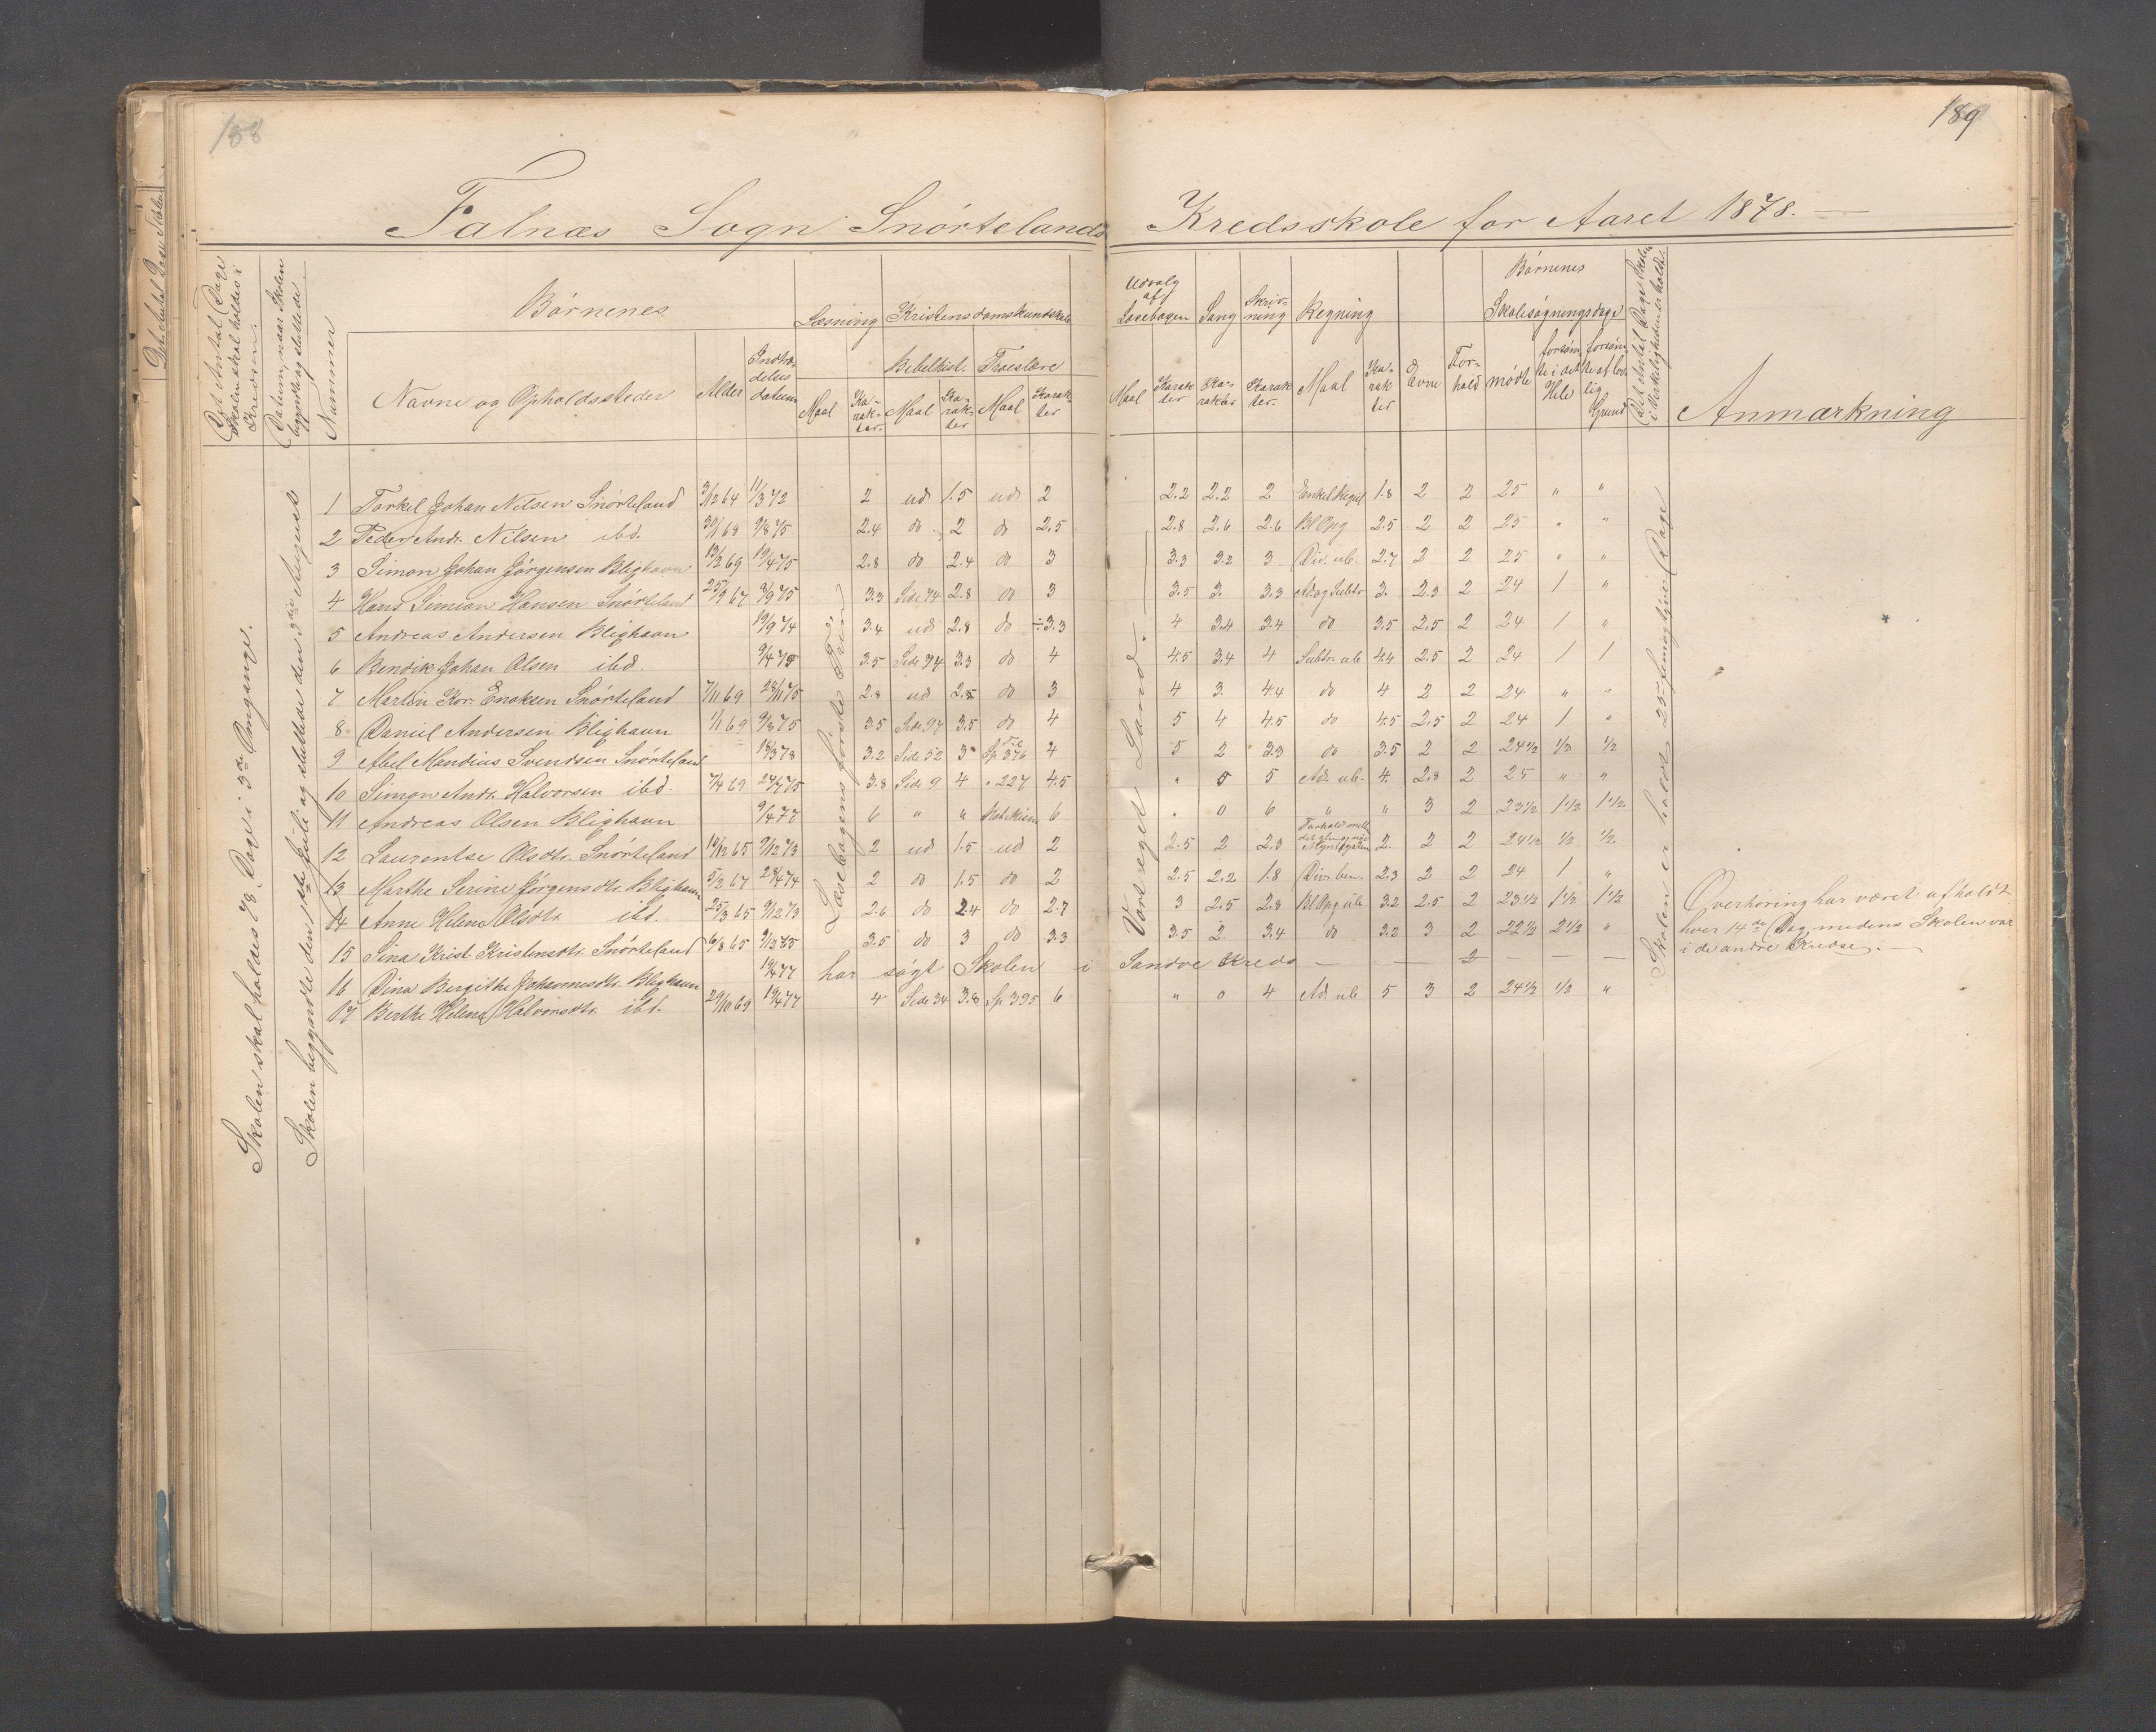 188
189
Falnæs Sogn Snørtelands Kredsskole for Aaret 1878.
Det Antal Dage Skolen skal holdes i Kredsen.
Datum, naar Skolen begyndte og sluttede
Nummer
Børnenes
Navne og Opholdssteder
Alder
Indtrædelses datum
Læsning
Maal
Karakter
Kristendomskundskab
Bibelhist.
Maal
Karakter
Troeslære
Maal
Karakter
Udvalg af Læsebogen
Maal
Karakter
Sang
Karakter
Skrivning
Karakter
Regning
Maal
Karakter
Evne
Forhold
Børnenes Skolesøgningsdage
mødte
forsømte i det Hele
forsømte af lovlig Grund
Det Antal Dage Skolen i Virkeligheden er holdt.
Anmærkning
Skolen skal holdes 78 Dage i 3de Omgange.
Skolen begyndte den 1ste Juli og sluttede den 3die August
Læsebogens første Trin
Vort eget Land
Skolen er holdt 25 - femogtyve Dage
1 Torkel Johan Nilsen Snørteland 3/12 64 11/3 72 2 ud 1.5 ud 2 2.2 2.2 2 Enkel Regul 1.8 2 2 25 " "
2 Peder Andr. Nilsen ibd. 30/1 68 9/8 75 2.4 do 2 do 2.5 2.8 2.6 2.6 Bl Opg 2.5 2 2 25 " "
3 Simon Johan Jørgensen Blighavn 13/2 69 19/4 75 2.8 do 2.4 do 3 3.3 3.2 3 Div. ub. 2.7 2 2 25 " "
4 Hans Simion Hansen Snørteland 25/9 67 3/9 75 3.3 Side 74 2.8 do 3 3.5 3. 3.3 Ad og Subtr 3. 2.3 2 24 1 "
5 Andreas Andersen Blighavn 19/9 74 3.4 ud 2.8 do ÷3.3 4 3.4 3.4 do 3.5 2.5 2 24 1 "
6 Bendik Johan Olsen ibd. 9/4 75 3.5 Side 94 3.3 do 4 4.5 3.4 4 Subtr. ub 4.4 2.5 2 24 1 1
7 Martin Kor. Enoksen Snørteland 7/11 69 28/11 75 2.8 ud 2.5 do 3 4 3. 4.4 do 4 2 2 24 " "
8 Daniel Andersen Blighavn 1/1 69 9/2 75 3.5 Side 97 3.5 do 4 5 4 4.5 do 4.5 2.5 2 24 1 "
9 Abel Mandius Svendsen Snørteland 18/3 78 3.2 Side 52 3 Sp 376 4 5 2 3.3 do 3.5 2 2 24 1/2 1/2 1/2
10 Simon Andr. Halvorsen ibd. 7/4 69 24/7 75 3.8 Side 9 4 " 227 4.5 " 5 5 Ad. ub. 4. 2.8 2 25 " "
11 Andreas Olsen Blighavn 9/4 77 6 " " Katekism 6 " 0 6 " " 3 2 23 1/2 1 1/2 1 1/2
12 Laurentse Olsdtr. Snørteland 13/12 65 9/12 73 2 ud 1.5 ud 2 2.5 2 2.3 2. 2 2 24 1/2 1/2 1/2
13 Marthe Serine Jørgensdtr. Blighavn 5/2 67 28/4 74 2 do 1.5 do 2 2.5 2.2 1.8 Div. ben. 2.3 2 2 24 1 "
14 Anne Helene Olsdtr. ibd. 25/3 65 9/12 73 2.6 do 2.4 do 2.7 3 2.5 2.8 Bl Opg ub 3.2 2.5 2 23 1/2 1 1/2 1 1/2
15 Sina Krist. Kristensdtr. Snørteland 6/8 65 9/12 75 3.5 do 3 do 3.3 3.5 2. 3.4 do 3.2 3 2 22 1/2 2 1/2 "
16 Dina Bergithe Johannesdtr. Blighavn 19/4 77 har søgt Skolen i Sandve Kreds — — 2 — — —
17 Berthe Helene Halvorsdtr. ibd. 29/10 69 19/4 77 4 Side 34 3.8 Sp 395 6 " 0 4 Ad. ub 5 3 2 24 1/2 1/2 "
Overhøring har været afholdt
hver 14de Dag, medens Skolen var
i de andre Kredse.